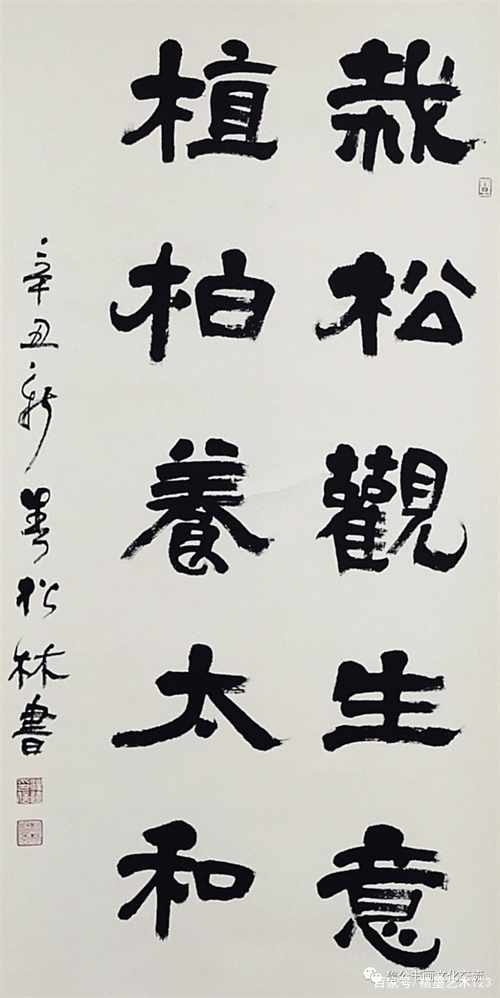 栽松觀生意
植柏養太和
辛丑新春松林書
百家号/楮墨艺术123